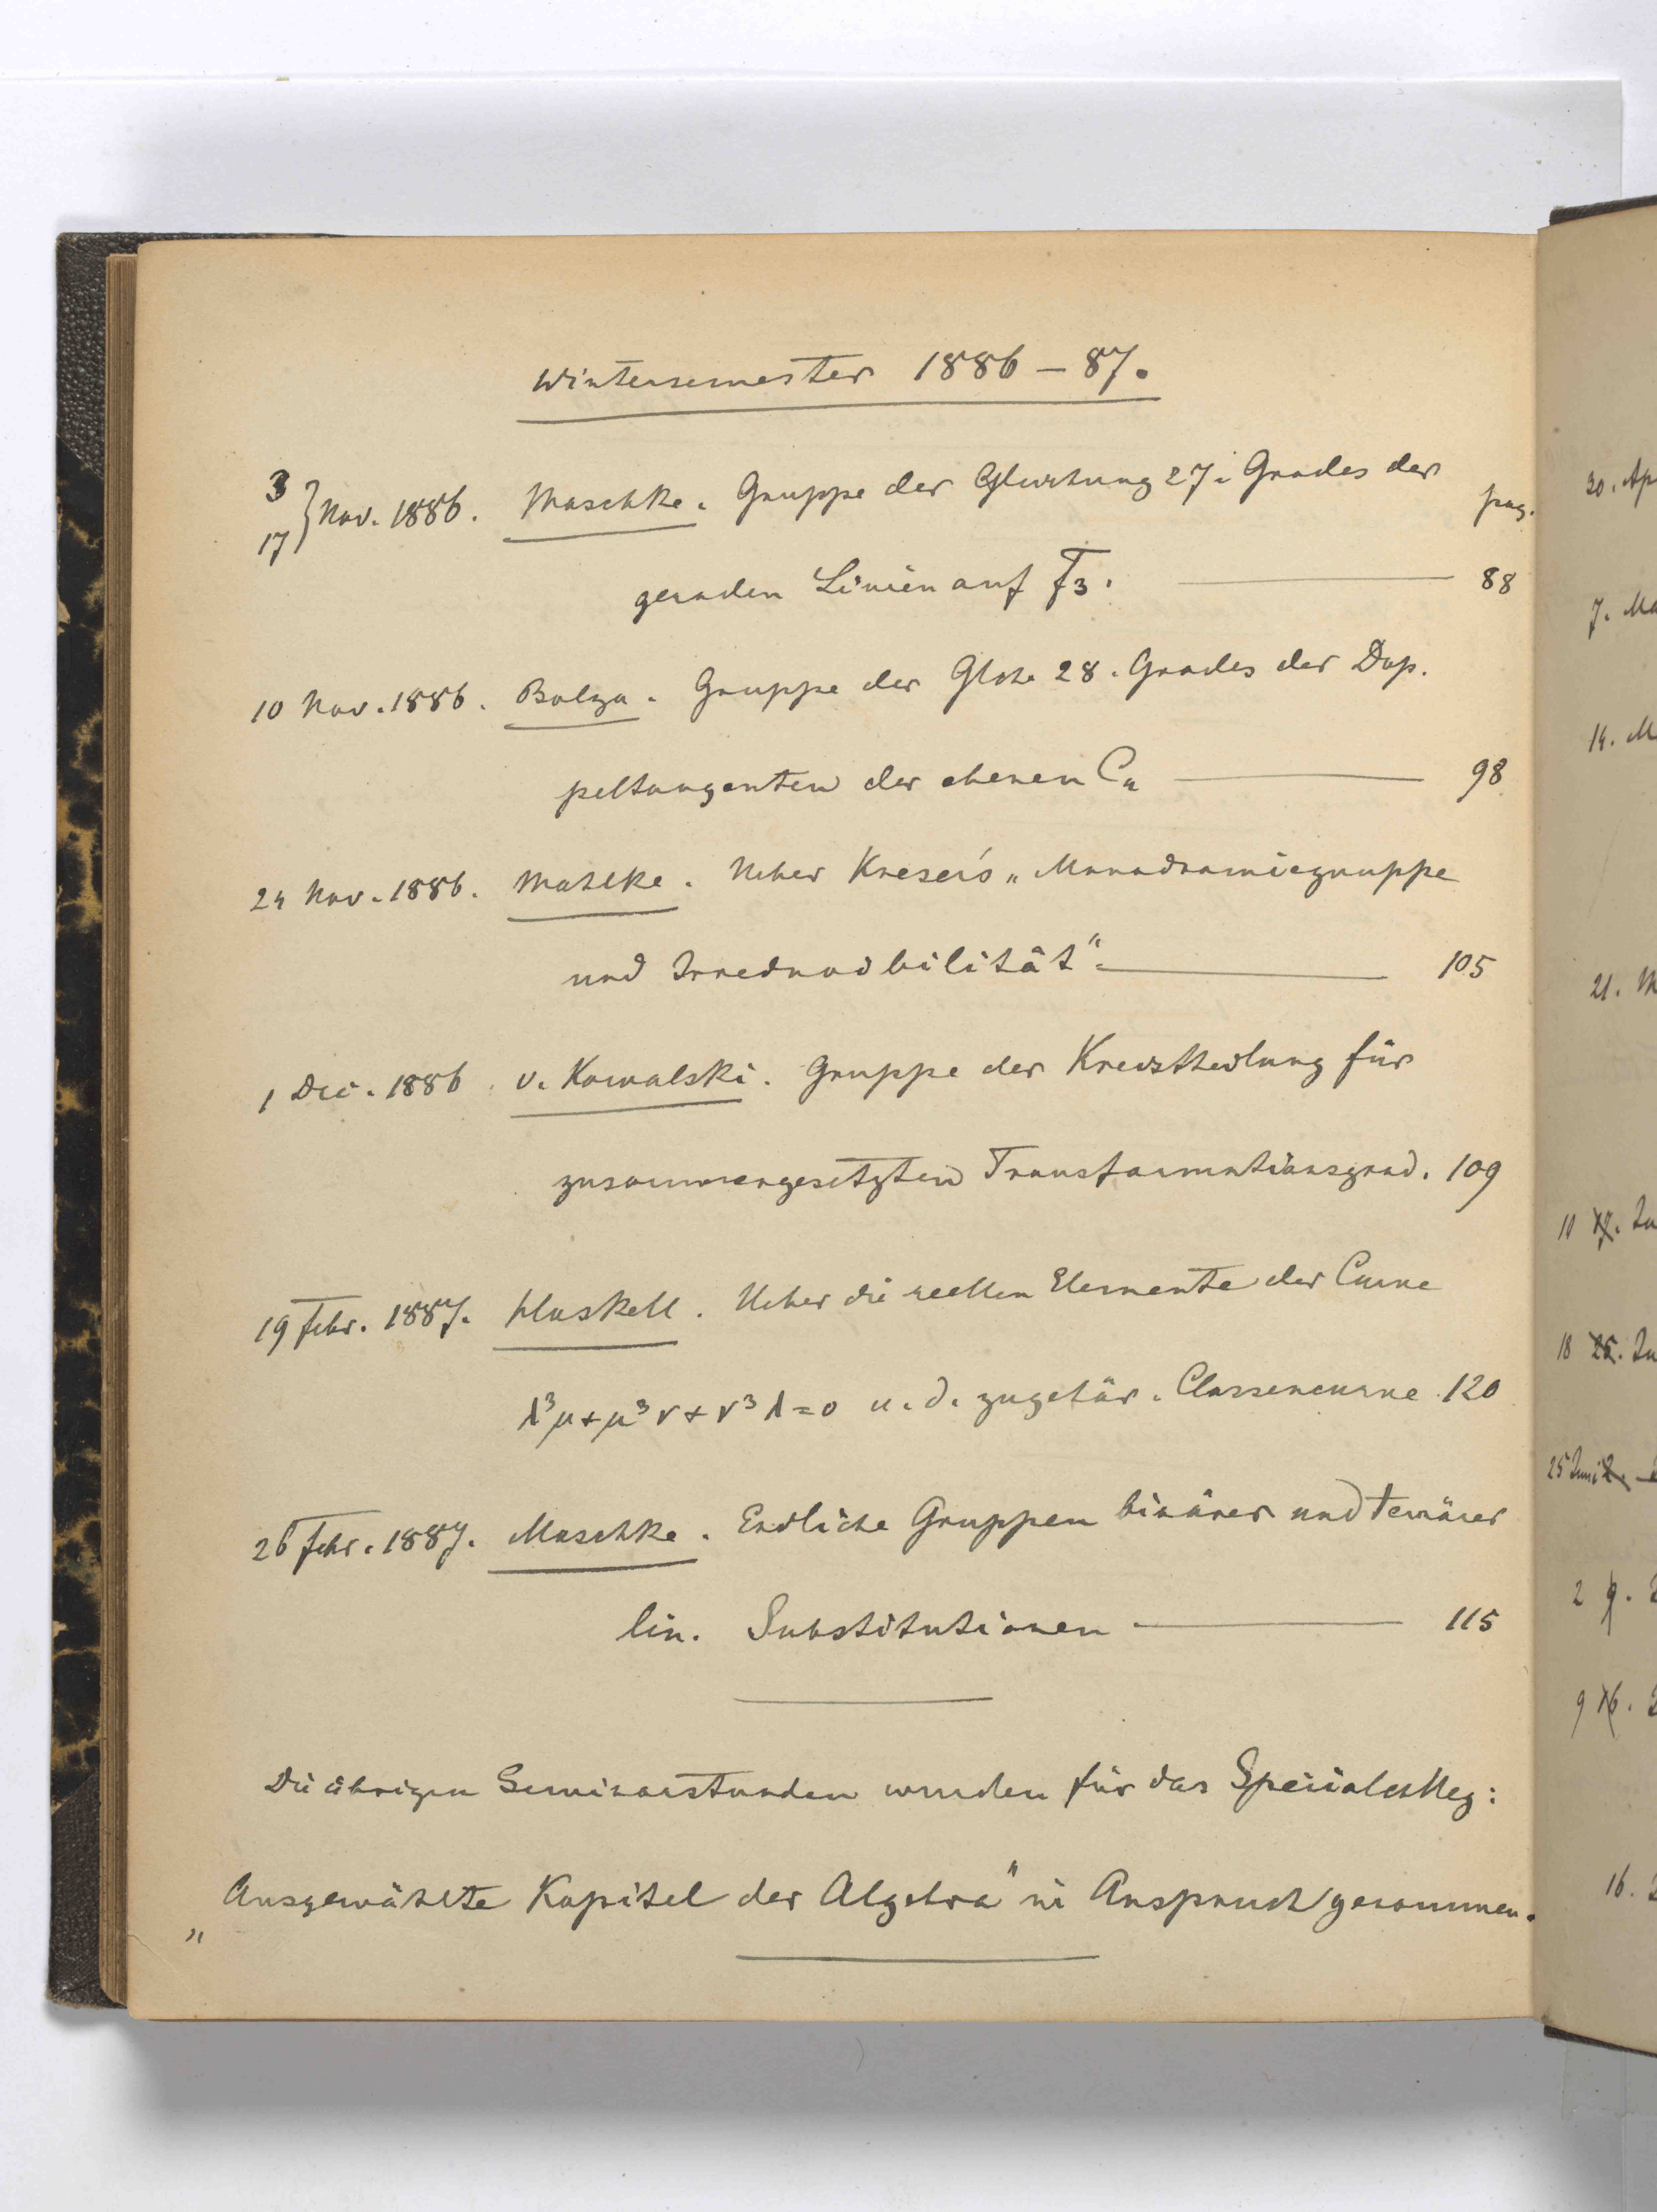 Wintersemester 1886–87.
3
17 } Nov. 1886. Maschke. Gruppe der Gleichung 27. Grades der
pag.
geraden Linien auf F3. — 88
10 Nov. 1886. Bolza. Gruppe der Glchg 28. Grades der Dop-
peltangenten der ebenen C4 — 98
24 Nov. 1886. Ueber Kneser's „Monodromiegruppe
und Irreducibilität“. — 105
1 Dec. 1886. v. Kowalski. Gruppe der Kreistheilung für
zusammengesetzten Transformationsgrad. 109
19 Febr. 1887. Haskell. Ueber die reellen Elemente der Curve
λ³μ+μ³ν+ν³λ=0 u. d. zugehör. Classencurve. 120
26 Febr. 1887. Maschke. Endliche Gruppen binärer und ternärer
lin. Substitutionen — 115
Die übrigen Seminarstunden wurden für das Specialcolleg:
„Ausgewählte Kapitel der Algebra“ in Anspruch genommen.
30. Ap
7. Ma
14. M
21. M
11
18
25 Juni
2
9
16.